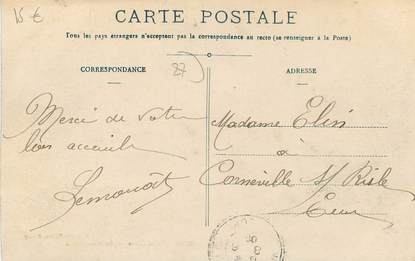 15 €
CARTE POSTALE
Tous les pays étrangers n'acceptent pas la correspondance au recto (se renseigner à la Poste)
CORRESPONDANCE
27
ADRESSE
Merci de votre
bon accueil
Madame Elin
à
Corneville S/ Risle
Eure